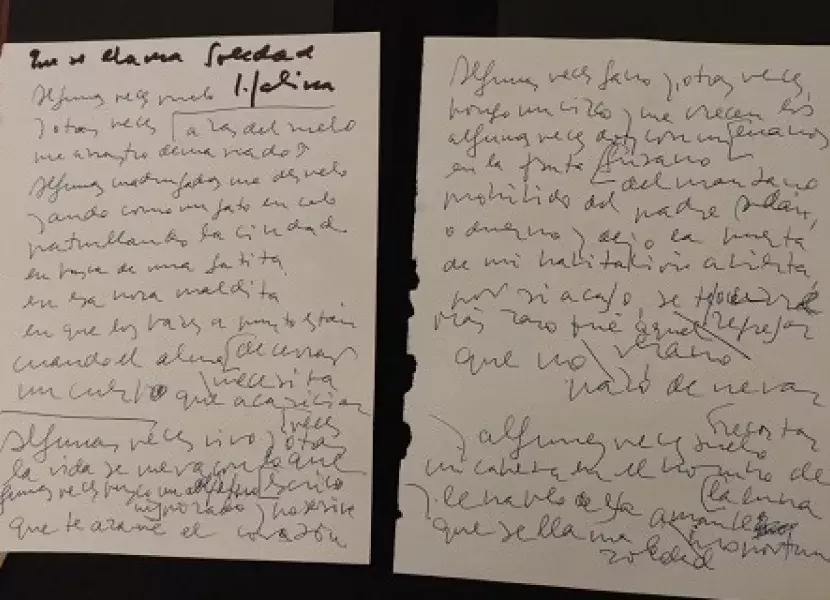 Que se llama Soledad
J. Sabina
Algunas veces vuelo
y otras veces
a ras del suelo
me arrastro demasiado
Algunas madrugadas me desvelo
y ando como un gato en celo
patrullando la ciudad
en busca de una gatita
en esa hora maldita
en que los bares a punto están
de cerrar
cuando el alma
necesita
un cuerpo que acariciar
Algunas veces vivo y otras
veces
la vida se me va con lo que
escribo
algunas veces busco un adjetivo
inspirado y posesivo
que te arañe el corazón
Algunas veces gano y otras veces
pongo un circo y me crecen los
enanos
algunas veces doy con un
gusano
en la fruta
del manzano
prohibido del padre Adán,
o duermo y dejo la puerta
de mi habitación abierta
por si acaso se te ocurre
regresar
más raro fue aquel
verano
que no
paró de nevar
y algunas veces suelo
recostar
mi cabeza en el hombro de
la luna
y le hablo de esa amante
inoportuna
que se llama
soledad